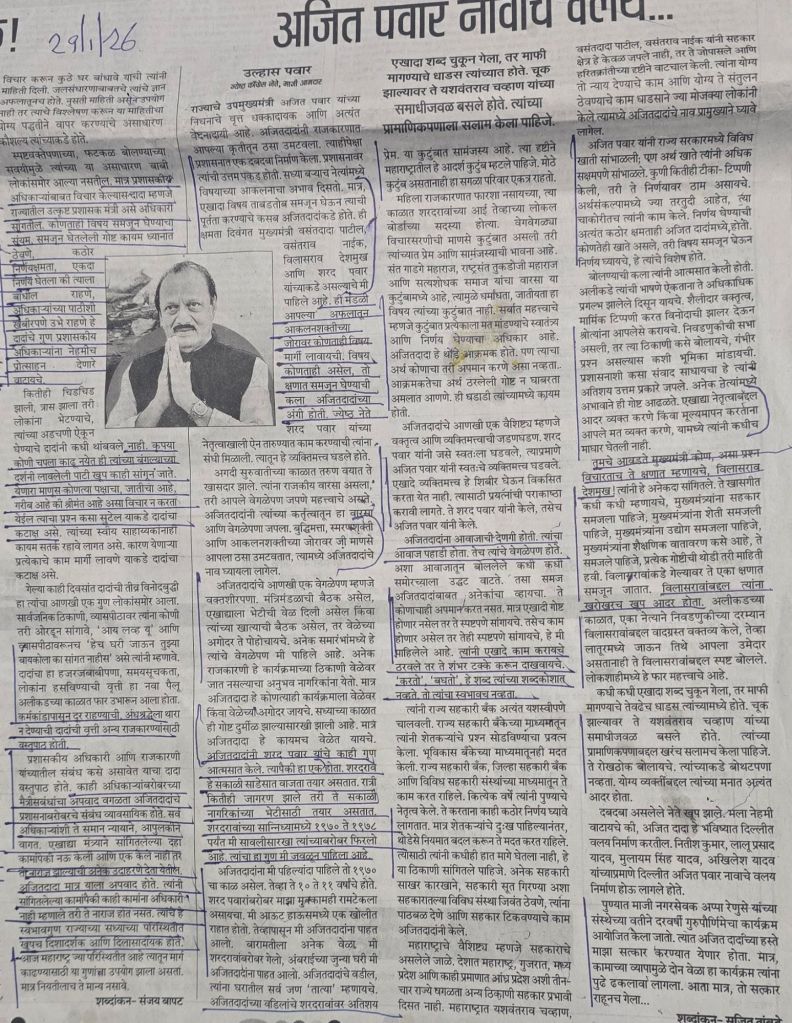 29/1/26
अजित पवार नावाचे वलय...
विचार करून कुठे घर बांधावे याची त्यांनी
माहिती दिली. जलसंधारणाबाबतचे त्यांचे ज्ञान
अफलातूनच होते. नुसती माहिती असेन उपयोग
नाही तर त्याचे विश्लेषण करून या माहितीचा
योग्य पद्धतीने वापर करण्याचे असाधारण
कौशल्य त्यांच्याकडे होते.
स्पष्टवक्तेपणाच्या, फटकळ बोलण्याच्या
सवयीमुळे त्यांच्या या असाधारण बाबी
लोकांसमोर आल्या नसतील. मात्र प्रशासकीय
अधिकाऱ्यांबाबत विचार केल्यास-दादा म्हणजे
राज्यातील उत्कृष्ट प्रशासक मंत्री असे अधिकारी
सांगतील. कोणताही विषय समजून घेण्याचा
संयम, समजून घेतलेली गोष्ट कायम ध्यानात
ठेवणे, कठोर
निर्णयक्षमता, एकदा
निर्णय घेतला की त्याला
बांधील राहणे,
अधिकाऱ्याच्या पाठीशी
खंबीरपणे उभे राहणे हे
दादांचे गुण प्रशासकीय
अधिकाऱ्यांना नेहमीच
प्रोत्साहन देणारे
वाटायचे.
कितीही चिडचिड
झाली, त्रास झाला तरी
लोकांना भेटण्याचे,
त्यांच्या अडचणी ऐकून
घेण्याचे दादांनी कधी थांबवले नाही. कृपया
कोणी चपला काढू नयेत ही त्यांच्या बंगल्याच्या
दर्शनी लावलेली पाटी खूप काही सांगून जाते.
येणारा माणूस कोणत्या पक्षाचा, जातीचा आहे,
गरीब आहे की श्रीमंत आहे असा विचार न करता
येईल त्याचा प्रश्न कसा सुटेल याकडे दादांचा
कटाक्ष असे. त्यांच्या स्वीय साहाय्यकांनाही
कायम सतर्क रहावे लागत असे. कारण येणाऱ्या
प्रत्येकाचे काम मार्गी लावणे याकडे दादांचा
कटाक्ष असे.
गेल्या काही दिवसांत दादांची तीव्र विनोदबुद्धी
हा त्यांचा आणखी एक गुण लोकांसमोर आला.
सार्वजनिक ठिकाणी, व्यासपीठावर त्यांना कोणी
तरी ओरडून सांगावे, 'आय लव्ह यू' आणि
व्यासपीठावरूनच 'हेच घरी जाऊन तुझ्या
बायकोला का सांगत नाहीस' असे त्यांनी म्हणावे.
दादांचा हा हजरजबाबीपणा, समयसूचकता,
लोकांना हसविण्याची वृत्ती हा नवा पैलू
अलीकडच्या काळात फार उभारून आला होता.
कर्मकांडापासून दूर राहण्याची, अंधश्रद्धेला थारा
न देण्याची दादांची वृत्ती अन्य राजकारण्यांसाठी
वस्तुपाठ होती.
प्रशासकीय अधिकारी आणि राजकारणी
यांच्यातील संबंध कसे असावेत याचा दादा
वस्तुपाठ होते. काही अधिकाऱ्यांबरोबरच्या
मैत्रीसंबंधांचा अपवाद वगळता अजितदादांचे
प्रशासनाबरोबरचे संबंध व्यावसायिक होते. सर्व
अधिकाऱ्यांशी ते समान न्यायाने, आपुलकीने
वागत. एखाद्या मंत्र्याने सांगितलेल्या दहा
कामांपैकी नऊ केली आणि एक केले नाही तर
ते नाराज झाल्याची अनेक उदाहरणे देता येतील.
अजितदादा मात्र याला अपवाद होते. त्यांनी
सांगितलेल्या कामांपैकी काही कामांना अधिकारी
नाही म्हणाले तरी ते नाराज होत नसत. त्यांचे हे
स्वभावगुण राज्याच्या सध्याच्या परिस्थितीत
खूपच दिशादर्शक आणि दिलासादायक होते.
आज महाराष्ट्र ज्या परिस्थितीत आहे त्यातून मार्ग
काढण्यासाठी या गुणांचा उपयोग झाला असता.
मात्र नियतीलाच ते मान्य नसावे.
शब्दांकन- संजय बापट
उल्हास पवार
ज्येष्ठ काँग्रेस नेते, माजी आमदार
राज्याचे उपमुख्यमंत्री अजित पवार यांच्या
निधनाचे वृत्त धक्कादायक आणि अत्यंत
वेदनादायी आहे. अजितदादांनी राजकारणात
आपल्या कृतीतून ठसा उमटवला. त्याहीपेक्षा
प्रशासनात एक दबदबा निर्माण केला. प्रशासनावर
त्यांची उत्तम पकड होती. सध्या बऱ्याच नेत्यांमध्ये
विषयाच्या आकलनाचा अभाव दिसतो. मात्र,
एखादा विषय ताबडतोब समजून घेऊन त्याची
पूर्तता करण्याचे कसब अजितदादांकडे होते. ही
क्षमता दिवंगत मुख्यमंत्री वसंतदादा पाटील,
वसंतराव नाईक,
विलासराव देशमुख
आणि शरद पवार
यांच्याकडे असल्याचे मी
पाहिले आहे. ही मंडळी
आपल्या अफलातून
आकलनशक्तीच्या
जोरावर कोणताही विषय
मार्गी लावायची. विषय
कोणताही असेल, तो
क्षणात समजून घेण्याची
कला अजितदादांच्या
अंगी होती. ज्येष्ठ नेते
शरद पवार यांच्या
नेतृत्वाखाली ऐन तारुण्यात काम करण्याची त्यांना
संधी मिळाली. त्यातून हे व्यक्तिमत्त्व घडले होते.
अगदी सुरुवातीच्या काळात तरुण वयात ते
खासदार झाले. त्यांना राजकीय वारसा असला,
तरी आपले वेगळेपण जपणे महत्त्वाचे असते.
अजितदादांनी त्यांच्या कर्तृत्वातून हा वारसा
आणि वेगळेपण जपला. बुद्धिमत्ता, स्मरणशक्ती
आणि आकलनशक्तीच्या जोरावर जी माणसे
आपला ठसा उमटवतात, त्यामध्ये अजितदादांचे
नाव घ्यायला लागेल.
अजितदादांचे आणखी एक वेगळेपण म्हणजे
वक्तशीरपणा. मंत्रिमंडळाची बैठक असेल,
एखाद्याला भेटीची वेळ दिली असेल किंवा
त्यांच्या खात्याची बैठक असेल, तर वेळेच्या
अगोदर ते पोहोचायचे. अनेक समारंभांमध्ये हे
त्यांचे वेगळेपण मी पाहिले आहे. अनेक
राजकारणी हे कार्यक्रमाच्या ठिकाणी वेळेवर
जात नसल्याचा अनुभव नागरिकांना येतो. मात्र
अजितदादा हे कोणत्याही कार्यक्रमाला वेळेवर
किंवा वेळेच्या अगोदर जायचे. सध्याच्या काळात
ही गोष्ट दुर्मीळ झाल्यासारखी झाली आहे. मात्र
अजितदादा हे कायमच वेळेत यायचे.
अजितदादांनी शरद पवार यांचे काही गुण
आत्मसात केले. त्यापैकी हा एक होता. शरदराव
हे सकाळी साडेसात वाजता तयार असतात. रात्री
कितीही जागरण झाले तरी ते सकाळी
नागरिकांच्या भेटीसाठी तयार असतात.
शरदरावांच्या सान्निध्यामध्ये १९७० ते १९७८
पर्यंत मी सावलीसारखा त्यांच्याबरोबर फिरलो
आहे. त्यांचा हा गुण मी जवळून पाहिला आहे.
अजितदादांना मी पहिल्यांदा पाहिले तो १९७०
चा काळ असेल. तेव्हा ते १० ते ११ वर्षांचे होते.
शरद पवारांबरोबर माझा मुक्कामही रामटेकला
असायचा. मी आऊट हाऊसमध्ये एक खोलीत
राहात होतो. तेव्हापासून मी अजितदादांना पाहात
आलो. बारामतीला अनेक वेळा मी
शरदरावांबरोबर गेलो, अंबराईच्या जुन्या घरी मी
अजितदादांना पाहात आलो. अजितदादांचे वडील,
त्यांना घरातील सर्व जण 'तात्या' म्हणायचे.
अजितदादांच्या वडिलांचे शरदरावांवर अतिशय
एखादा शब्द चुकून गेला, तर माफी
मागण्याचे धाडस त्यांच्यात होते. चूक
झाल्यावर ते यशवंतराव चव्हाण यांच्या
समाधीजवळ बसले होते. त्यांच्या
प्रामाणिकपणाला सलाम केला पाहिजे.
प्रेम. या कुटुंबात सामंजस्य आहे. त्या दृष्टीने
महाराष्ट्रातील हे आदर्श कुटुंब म्हटले पाहिजे. मोठे
कुटुंब असतानाही हा सगळा परिवार एकत्र राहतो.
महिला राजकारणात फारशा नसायच्या, त्या
काळात शरदरावांच्या आई तेव्हाच्या लोकल
बोर्डाच्या सदस्या होत्या. वेगवेगळ्या
विचारसरणीची माणसे कुटुंबात असली तरी
त्यांच्यात प्रेम आणि सामंजस्याची भावना आहे.
संत गाडगे महाराज, राष्ट्रसंत तुकडोजी महाराज
आणि सत्यशोधक समाज यांचा वारसा या
कुटुंबामध्ये आहे, त्यामुळे धर्मांधता, जातीयता हा
विषय त्यांच्या कुटुंबात नाही. सर्वात महत्त्वाचे
म्हणजे कुटुंबात प्रत्येकाला मत मांडण्याचे स्वातंत्र्य
आणि निर्णय घेण्याचा अधिकार आहे.
अजितदादा हे थोडे आक्रमक होते. पण त्याचा
अर्थ कोणाचा तरी अपमान करणे असा नव्हता.
आक्रमकतेचा अर्थ ठरलेली गोष्ट न घाबरता
अमलात आणणे. ही घडाडी त्यांच्यामध्ये कायम
होती.
अजितदादांचे आणखी एक वैशिष्ट्य म्हणजे
वक्तृत्व आणि व्यक्तिमत्त्वाची जडणघडण. शरद
पवार यांनी जसे स्वतःला घडवले, त्याप्रमाणे
अजित पवार यांनी स्वतःचे व्यक्तिमत्त्व घडवले.
एखादे व्यक्तिमत्त्व हे शिबीर घेऊन विकसित
करता येत नाही. त्यासाठी प्रयत्नांची पराकाष्ठा
करावी लागते. ते शरद पवार यांनी केले, तसेच
अजित पवार यांनी केले.
अजितदादांना आवाजाची देणगी होती. त्यांचा
आवाज पहाडी होता. तेच त्यांचे वेगळेपण होते.
अशा आवाजातून बोललेले कधी कधी
समोरच्याला उद्धट वाटते. तसा समज
अजितदादांबाबत अनेकांचा व्हायचा. ते
कोणाचाही अपमान करत नसत. मात्र एखादी गोष्ट
होणार नसेल तर ते स्पष्टपणे सांगायचे. तसेच काम
होणार असेल तर तेही स्पष्टपणे सांगायचे, हे मी
पाहिलेले आहे. त्यांनी एखादे काम करायचे
ठरवले तर ते शंभर टक्के करून दाखवायचे.
'करतो', 'बघतो', हे शब्द त्यांच्या शब्दकोशात
नव्हते. तो त्यांचा स्वभावच नव्हता.
त्यांनी राज्य सहकारी बँक अत्यंत यशस्वीपणे
चालवली. राज्य सहकारी बँकेच्या माध्यमातून
त्यांनी शेतकऱ्यांचे प्रश्न सोडविण्याचा प्रयत्न
केला. भूविकास बँकेच्या माध्यमातूनही मदत
केली. राज्य सहकारी बँक, जिल्हा सहकारी बँक
आणि विविध सहकारी संस्थांच्या माध्यमातून ते
काम करत राहिले. कित्येक वर्षे त्यांनी पुण्याचे
नेतृत्व केले. ते करताना काही कठोर निर्णय घ्यावे
लागतात. मात्र शेतकऱ्यांचे दुःख पाहिल्यानंतर,
थोडेसे नियमात बदल करून ते मदत करत राहिले.
त्यासाठी त्यांनी कधीही हात मागे घेतला नाही, हे
या ठिकाणी सांगितले पाहिजे. अनेक सहकारी
साखर कारखाने, सहकारी सूत गिरण्या अशा
सहकारातल्या विविध संस्था जिवंत ठेवणे, त्यांना
पाठबळ देणे आणि सहकार टिकवण्याचे काम
अजितदादांनी केले.
महाराष्ट्राचे वैशिष्ट्य म्हणजे सहकाराचे
असलेले जाळे. देशात महाराष्ट्र, गुजरात, मध्य
प्रदेश आणि काही प्रमाणात आंध्र प्रदेश अशी तीन-
चार राज्ये वगळता अन्य ठिकाणी सहकार प्रभावी
दिसत नाही. महाराष्ट्रात यशवंतराव चव्हाण,
वसंतदादा पाटील, वसंतराव नाईक यांनी सहकार
क्षेत्र हे केवळ जपले नाही, तर ते जोपासले आणि
हरितक्रांतीच्या दृष्टीने वाटचाल केली. त्यांना योग्य
तो न्याय देण्याचे काम आणि योग्य ते संतुलन
ठेवण्याचे काम धाडसाने ज्या मोजक्या लोकांनी
केले त्यामध्ये अजितदादांचे नाव प्रामुख्याने घ्यावे
लागेल.
अजित पवार यांनी राज्य सरकारमध्ये विविध
खाती सांभाळली; पण अर्थ खाते त्यांनी अधिक
सक्षमपणे सांभाळले. कुणी कितीही टीका- टिप्पणी
केली, तरी ते निर्णयावर ठाम असायचे.
अर्थसंकल्पामध्ये ज्या तरतुदी आहेत, त्या
चाकोरीतच त्यांनी काम केले. निर्णय घेण्याची
अत्यंत कठोर क्षमताही अजित दादांमध्ये होती.
कोणतेही खाते असले, तरी विषय समजून घेऊन
निर्णय घ्यायचे, हे त्यांचे विशेष होते.
बोलण्याची कला त्यांनी आत्मसात केली होती.
अलीकडे त्यांची भाषणे ऐकताना ते अधिकाधिक
प्रगल्भ झालेले दिसून यायचे. शैलीदार वक्तृत्व,
मार्मिक टिप्पणी करत विनोदाची झालर देऊन
श्रोत्यांना आपलेसे करायचे. निवडणुकीची सभा
असली, तर त्या ठिकाणी कसे बोलायचे, गंभीर
प्रश्न असल्यास कशी भूमिका मांडायची.
प्रशासनाशी कसा संवाद साधायचा हे त्यांनी
अतिशय उत्तम प्रकारे जपले. अनेक नेत्यांमध्ये
अभावाने ही गोष्ट आढळते. एखाद्या नेतृत्वाबद्दल
आदर व्यक्त करणे किंवा मूल्यमापन करताना
आपले मत व्यक्त करणे, यामध्ये त्यांनी कधीच
माघार घेतली नाही.
तुमचे आवडते मुख्यमंत्री कोण, असा प्रश्न
विचारताच ते क्षणात म्हणायचे, विलासराव
देशमुख! त्यांनी हे अनेकदा सांगितले. ते खासगीत
कधी कधी म्हणायचे, मुख्यमंत्र्यांना सहकार
समजला पाहिजे, मुख्यमंत्र्यांना शेती समजली
पाहिजे, मुख्यमंत्र्यांना उद्योग समजला पाहिजे,
मुख्यमंत्र्यांना शैक्षणिक वातावरण कसे आहे, ते
समजले पाहिजे, प्रत्येक गोष्टीची थोडी तरी माहिती
हवी. विलासरावांकडे गेल्यावर ते एका क्षणात
समजून जातात. विलासरावांबद्दल त्यांना
खरोखरच खूप आदर होता. अलीकडच्या
काळात, एका नेत्याने निवडणुकीच्या दरम्यान
विलासरावांबद्दल वादग्रस्त वक्तव्य केले, तेव्हा
लातूरमध्ये जाऊन तिथे आपला उमेदवार
असतानाही ते विलासरावांबद्दल स्पष्ट बोलले.
लोकशाहीमध्ये हे फार महत्त्वाचे आहे.
कधी कधी एखादा शब्द चुकून गेला, तर माफी
मागण्याचे तेवढेच धाडस त्यांच्यामध्ये होते. चूक
झाल्यावर ते यशवंतराव चव्हाण यांच्या
समाधीजवळ बसले होते. त्यांच्या
प्रामाणिकपणाबद्दल खरंच सलामच केला पाहिजे.
ते रोखठोक बोलायचे. त्यांच्याकडे बोथटपणा
नव्हता. योग्य व्यक्तींबद्दल त्यांच्या मनात अत्यंत
आदर होता.
दबदबा असलेले नेते खूप झाले. मला नेहमी
वाटायचे की, अजित दादा हे भविष्यात दिल्लीत
वलय निर्माण करतील. नितीश कुमार, लालू प्रसाद
यादव, मुलायम सिंह यादव, अखिलेश यादव
यांच्याप्रमाणे दिल्लीत अजित पवार नावाचे वलय
निर्माण होऊ लागले होते.
पुण्यात माजी नगरसेवक अप्पा रेणुसे यांच्या
संस्थेच्या वतीने दरवर्षी गुरुपौर्णिमेचा कार्यक्रम
आयोजित केला जातो. त्यात अजित दादांच्या हस्ते
माझा सत्कार करण्यात येणार होता. मात्र,
कामाच्या व्यापामुळे दोन वेळा हा कार्यक्रम त्यांना
पुढे ढकलावा लागला. आता मात्र, तो सत्कार
राहूनच गेला...
शब्दांकन-